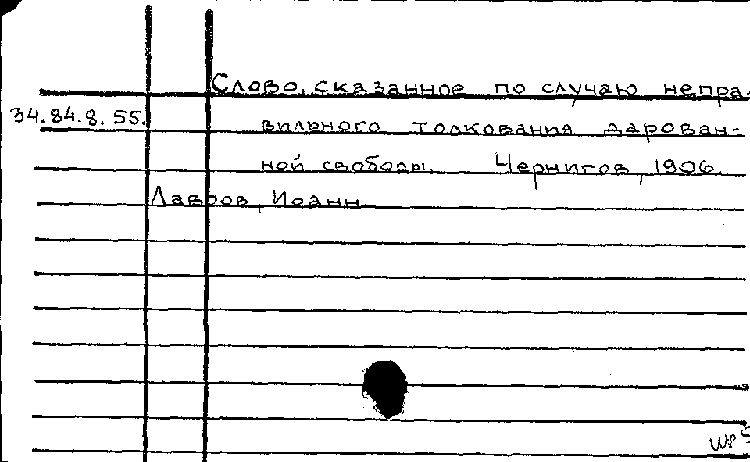 Слово, сказанное по случаю непра-
34.84.8.55.
вильного толкования дарован-
ной свободы. Чернигов, 1906.
Лавров, Иоанн